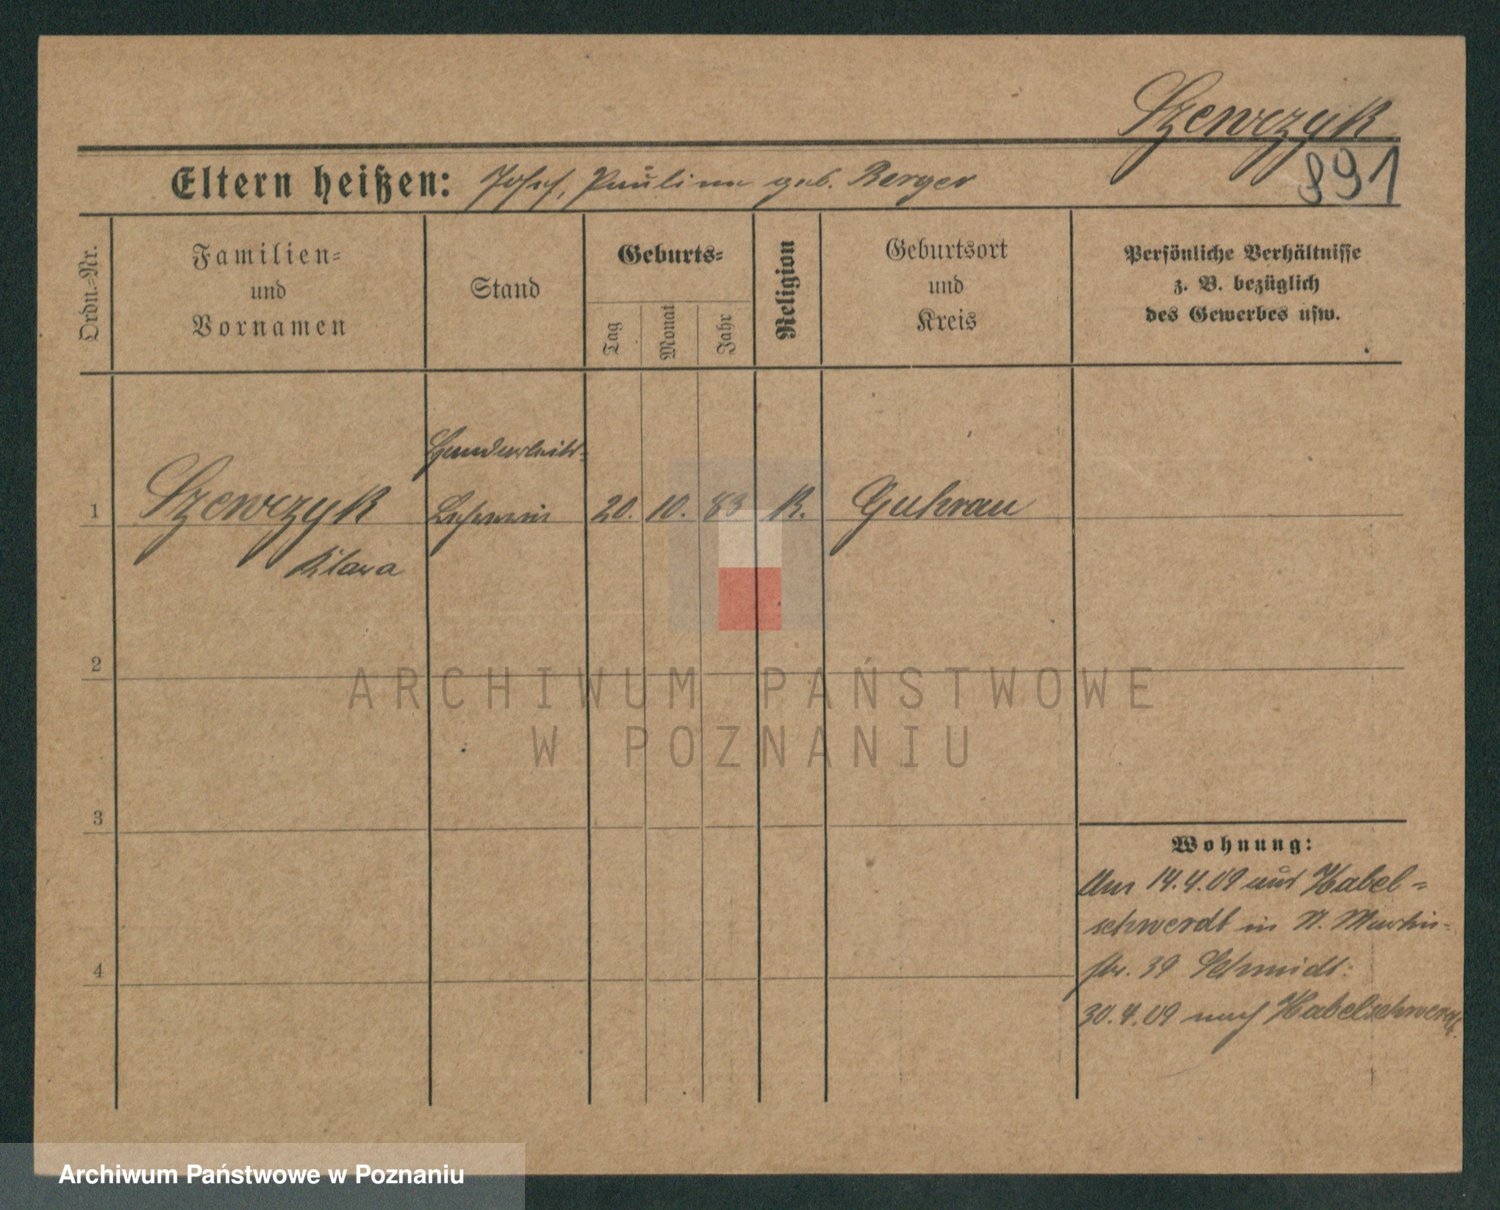 Szewczyk
891
Eltern heißen: Josef, Pauline geb. Berger
Ordn.=Nr.
Familien=
und
Vornamen
Stand
Geburts=
Tag
Monat
Jahr
Religion
Geburtsort
und
Kreis
Persönliche Verhältnisse
z. B. bezüglich
des Gewerbes usw.
Handarbeits-
1 Szewczyk Lehrerin 20. 10. 83 K. Guhrau
Klara
2
ARCHIWUM PAŃSTWOWE
W POZNANIU
3
Wohnung:
Am 14.4.09 aus Habel=
schwerdt in St. Martin-
str. 39 Schmidt:
4
30.4.09 nach Habelschwerdt
Archiwum Państwowe w Poznaniu